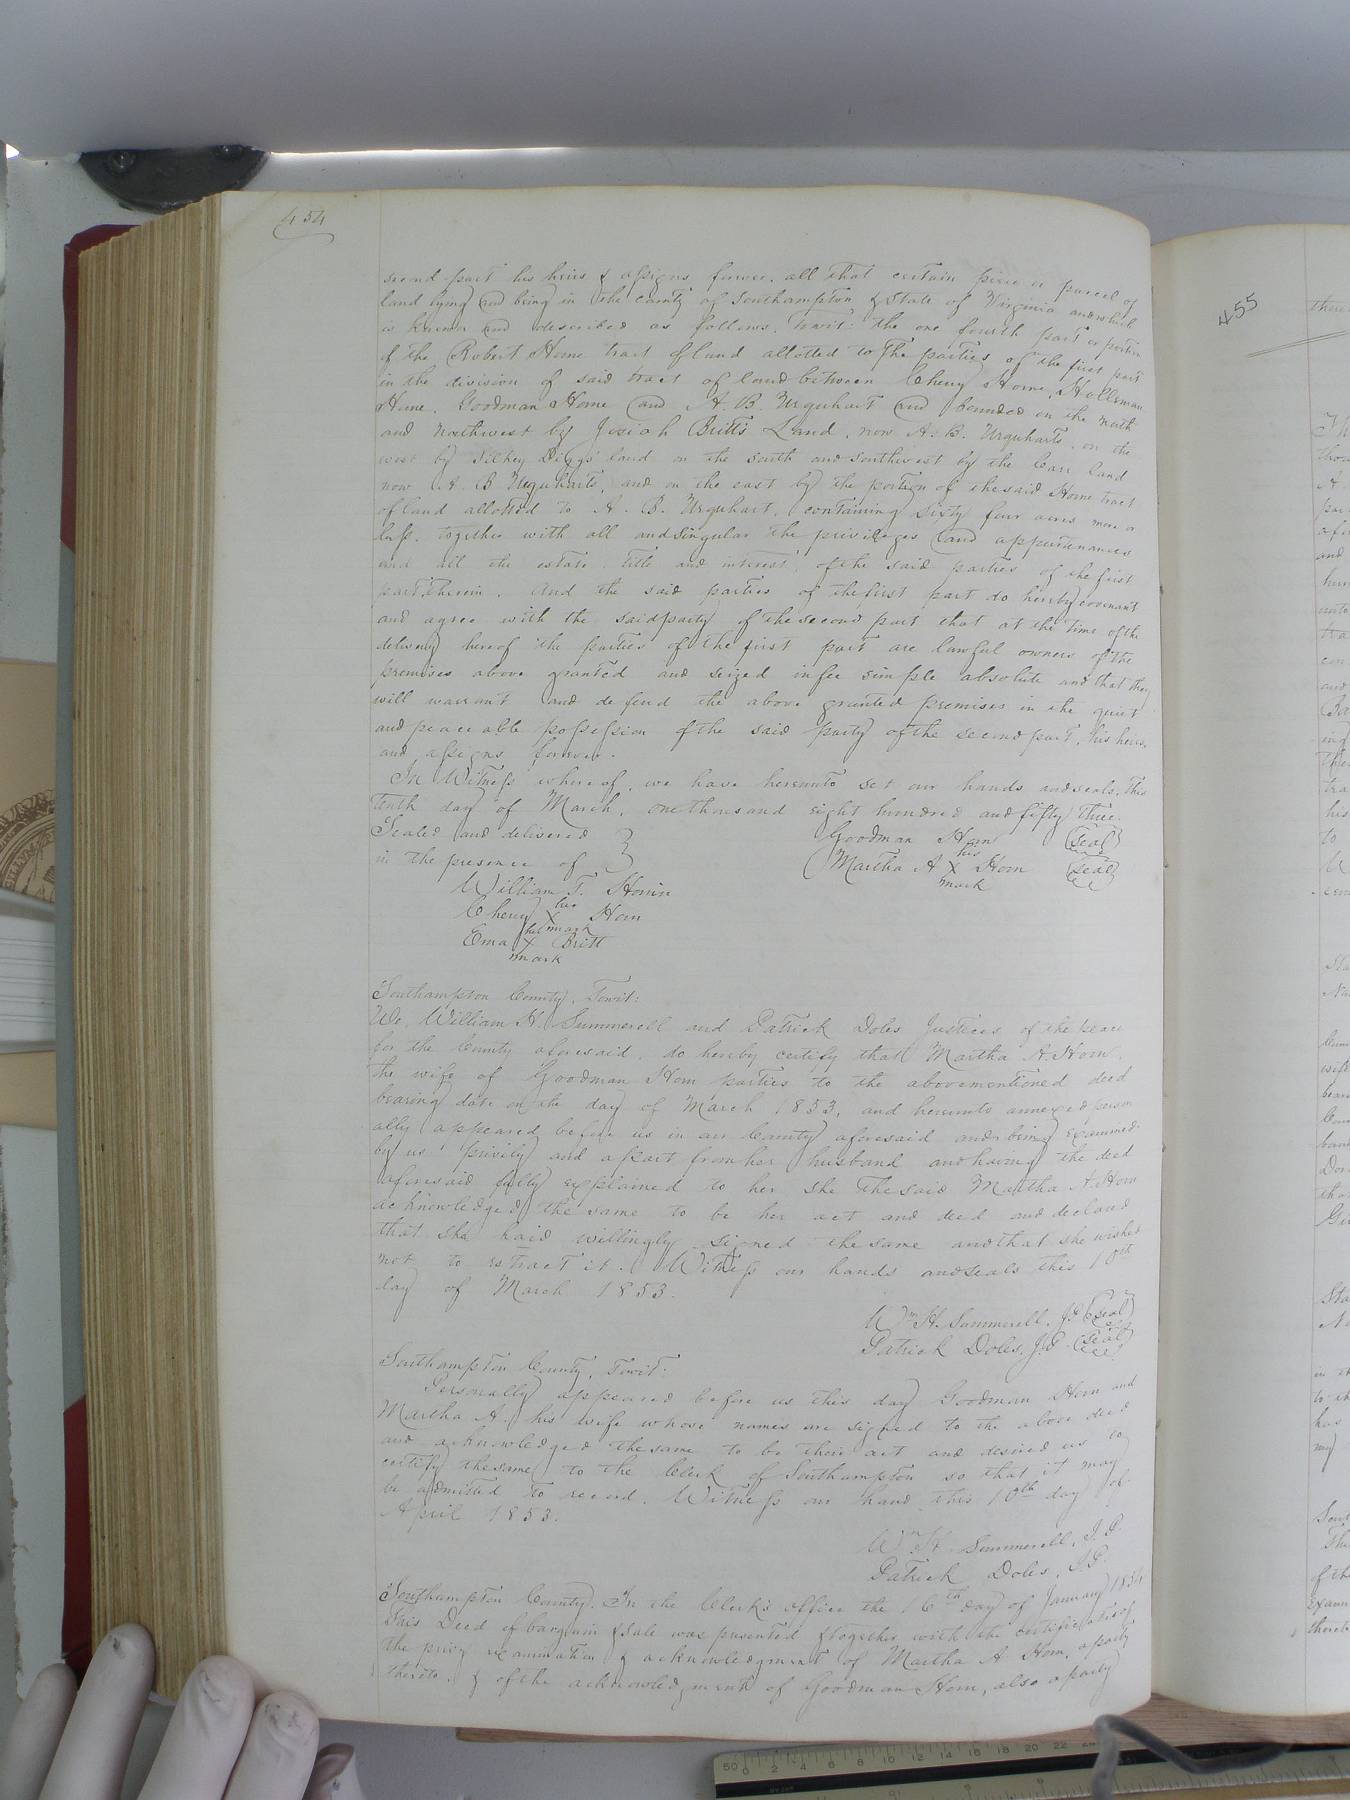 454
second part his heirs & assigns forever. all that certain piece or parcel of
land lying and being in the county of Southampton & State of Virginia and which
is known and described as follows, Towit: the one fourth part or portion
of the Robert Horne tract of land allotted to the parties of the first part
in the division of said tract of land between Cherry Horne, Holloman
Horne, Goodman Horne and A. B. Urquhart and bounded on the north
and northwest by Josiah Britt's Land, now A. B. Urquharts, on the
west by Silkey Diggs' land on the south and southwest by the Carr land
now A. B Urquharts, and on the east by the portion of the said Horne tract
of land allotted to A. B. Urquhart, containing sixty four acres more or
less, together with all and singular the privileges and appurtenances
and all the estate, title and interest, of the said parties of the first
part, therein. And the said parties of the first part do hereby covenant
and agree with the said party of the second part that at the time of the
delivery hereof the parties of the first part are lawful owners of the
premises above granted and seized in fee simple absolute and that they
will warrant and defend the above granted premises in the quiet
and peaceable possession of the said party of the second part, his heirs,
and assigns forever.
In Witness whereof, we have hereunto set our hands and seals, this
tenth day of March, one thousand eight hundred and fifty three.
Sealed and delivered } Goodman Horn (seal)
in the presence of } Martha A X Horn (seal)
his
mark
William T. Horin
Cherry X Horn
his
mark
Ema X Britt
her
mark
Southampton County, Towit:
We, William H. Summerell and Patrick Doles Justices of the peace
for the County aforesaid, do hereby certify that Martha A. Horn,
the wife of Goodman Horn parties to the abovementioned deed
bearing date on the day of March 1853, and hereunto annexed person
ally appeared before us in our County aforesaid and being examined
by us privily and apart from her husband and having the deed
aforesaid fully explained to her she the said Martha A Horn
acknowledged the same to be her act and deed and declared
that she haid willingly signed the same and that she wished
not to retract it. Witness our hands and seals this 10th
day of March 1853.
Wm H. Summerell, J.P (seal)
Patrick Doles, J.P. (seal)
Southampton County, Towit:
Personally appeared before us this day Goodman Horn and
Martha A. his wife whose names are signed to the above deed
and acknowledged the same to be their act and desired us to
certify the same to the Clerk of Southampton so that it may
be admitted to record. Witness our hand this 10th day of
April 1853.
Wm H Summerell, J.P.
Patrick Doles, J.P.
Southampton County. In the Clerk's office the 16th day of January 1854
This Deed of bargain & Sale was presented & together with the certificates of
the privy examination & acknowledgment of Martha A Horn, a party
thereto, & of the acknowledgment of Goodman Horn, also a party
455